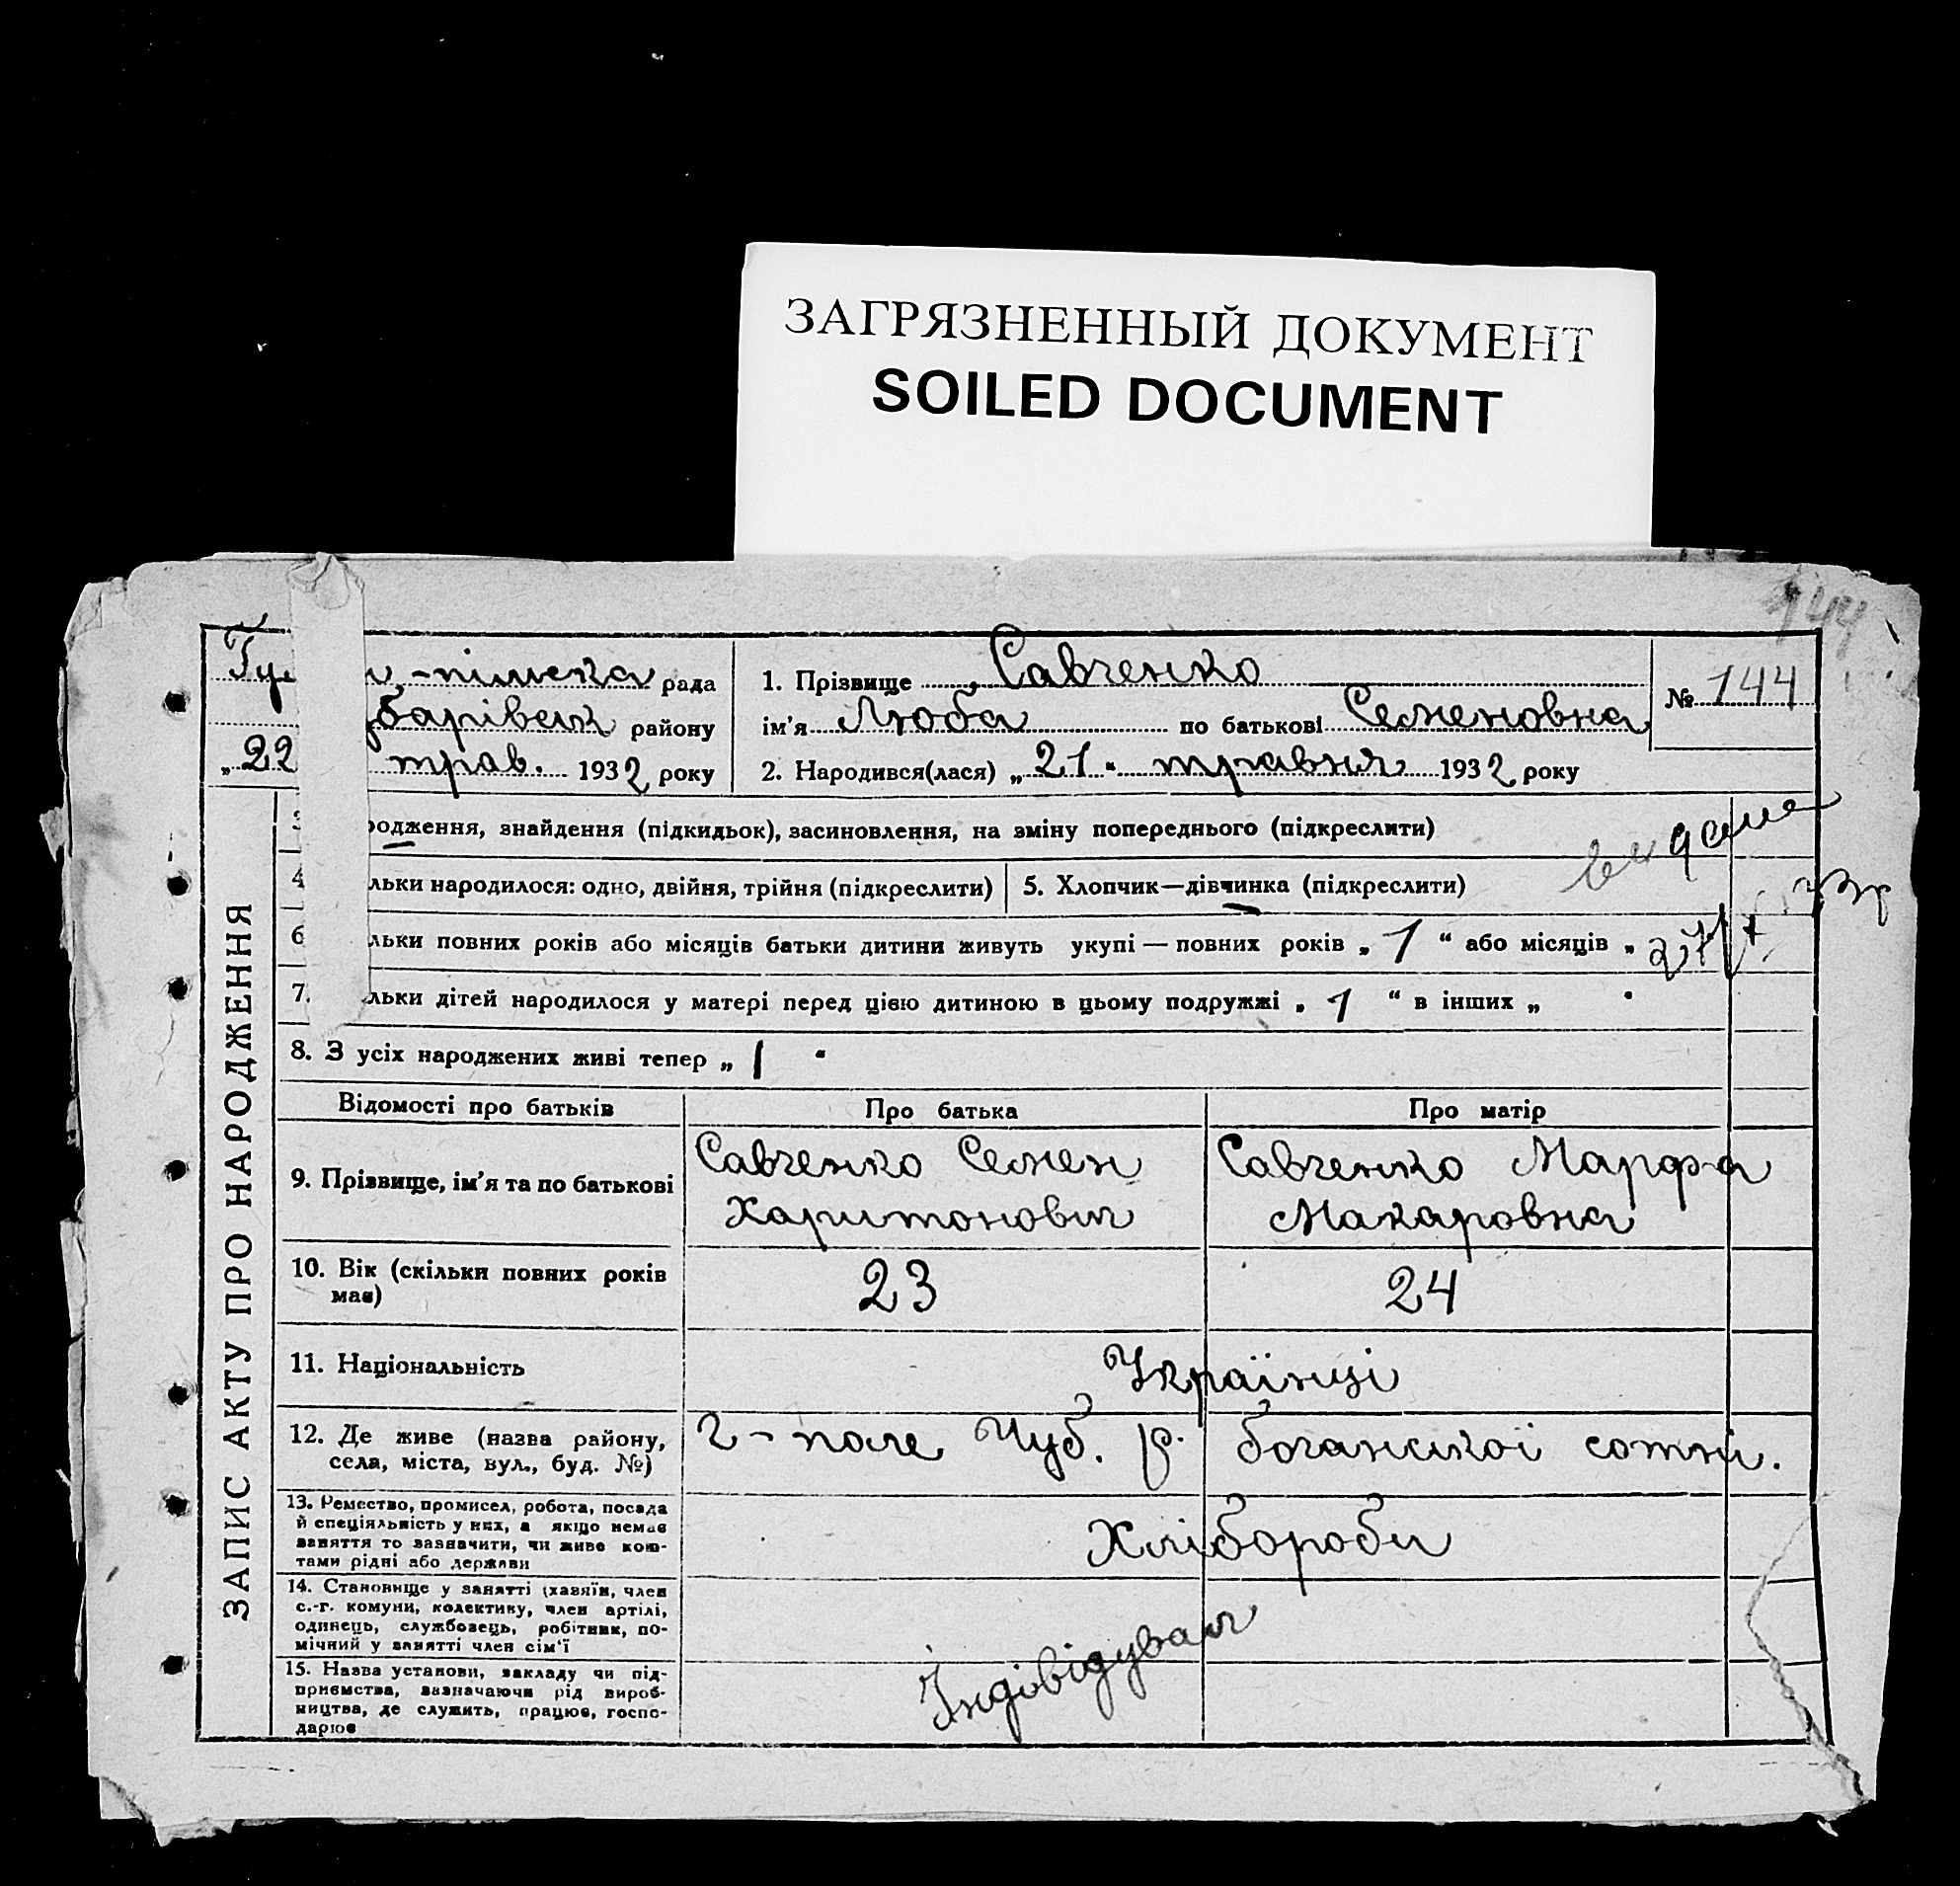 ЗАГРЯЗНЕННЫЙ ДОКУМЕНТ
SOILED DOCUMENT
144
рада
барівськ району
„22 трав. 1932 року
1. Прізвище Савченко
ім'я Люба по батькові Семеновна
2. Народився(лася) „21" травня 1932 року
№ 144
ЗАПИС АКТУ ПРО НАРОДЖЕННЯ
родження, знайдення (підкидьок), засиновлення, на зміну попереднього (підкреслити)
4 льки народилося: одно, двійня, трійня (підкреслити)
5. Хлопчик—дівчинка (підкреслити)
6 льки повних років або місяців батьки дитини живуть укупі — повних років „ 1 “ або місяців „
7. льки дітей народилося у матері перед цією дитиною в цьому подружжі „ 1 “ в інших „
8. З усіх народжених живі тепер „ 1 “
Відомості про батьків Про батька Про матір
9. Прізвище, ім'я та по батькові
Савченко Семен
Харитонович
Савченко Марфа
Макаровна
10. Вік (скільки повних років
має)
23 24
11. Національність
Українці
12. Де живе (назва району,
села, міста, вул., буд. №)
г-поле Чуб. р. боганської сотні.
13. Ремество, промисел, робота, посада
й спеціяльність у них, а якщо немає
заняття то зазначити, чи живе кош-
тами рідні або держави
Хлібороби
14. Становище у занятті (хазяїн, член
с.-г. комуни, колективу, член артілі,
одинець, службовець, робітник, по-
мічний у занятті член сім'ї
15. Назва установи, закладу чи під-
приємства, зазначаючи рід вироб-
ництва, де служить, працює, госпо-
дарює